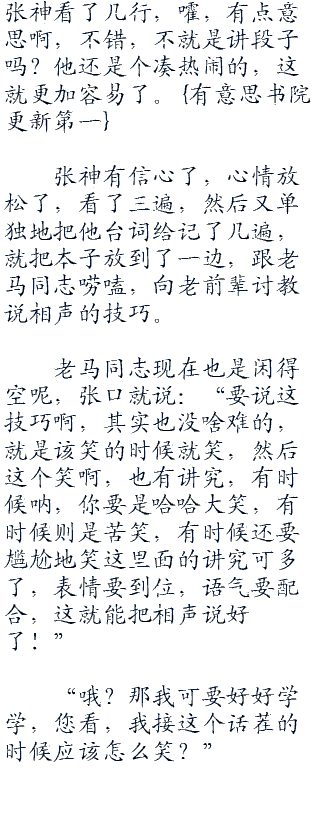 张神看了几行，嚯，有点意
思啊，不错，不就是讲段子
吗？他还是个凑热闹的，这
就更加容易了。{有意思书院
更新第一}
张神有信心了，心情放
松了，看了三遍，然后又单
独地把他台词给记了几遍，
就把本子放到了一边，跟老
马同志唠嗑，向老前辈讨教
说相声的技巧。
老马同志现在也是闲得
空呢，张口就说：“要说这
技巧啊，其实也没啥难的，
就是该笑的时候就笑，然后
这个笑啊，也有讲究，有时
候呐，你要是哈哈大笑，有
时候则是苦笑，有时候还要
尴尬地笑这里面的讲究可多
了，表情要到位，语气要配
合，这就能把相声说好
了！”
“哦？那我可要好好学
学，您看，我接这个话茬的
时候应该怎么笑？”